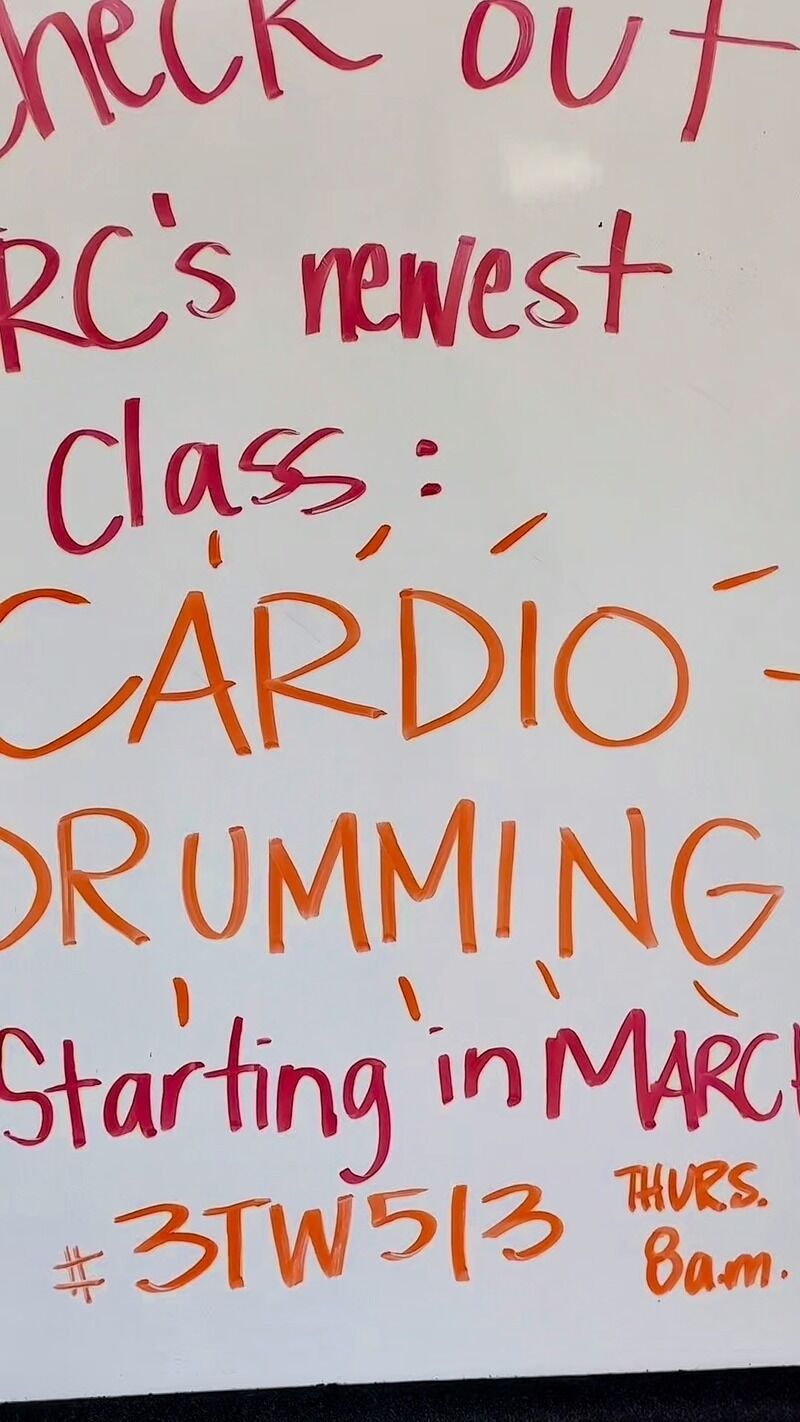 Check out
RC's newest
class:
CARDIO
DRUMMING
Starting in MARCH
#3TW513 THURS.
8a.m.